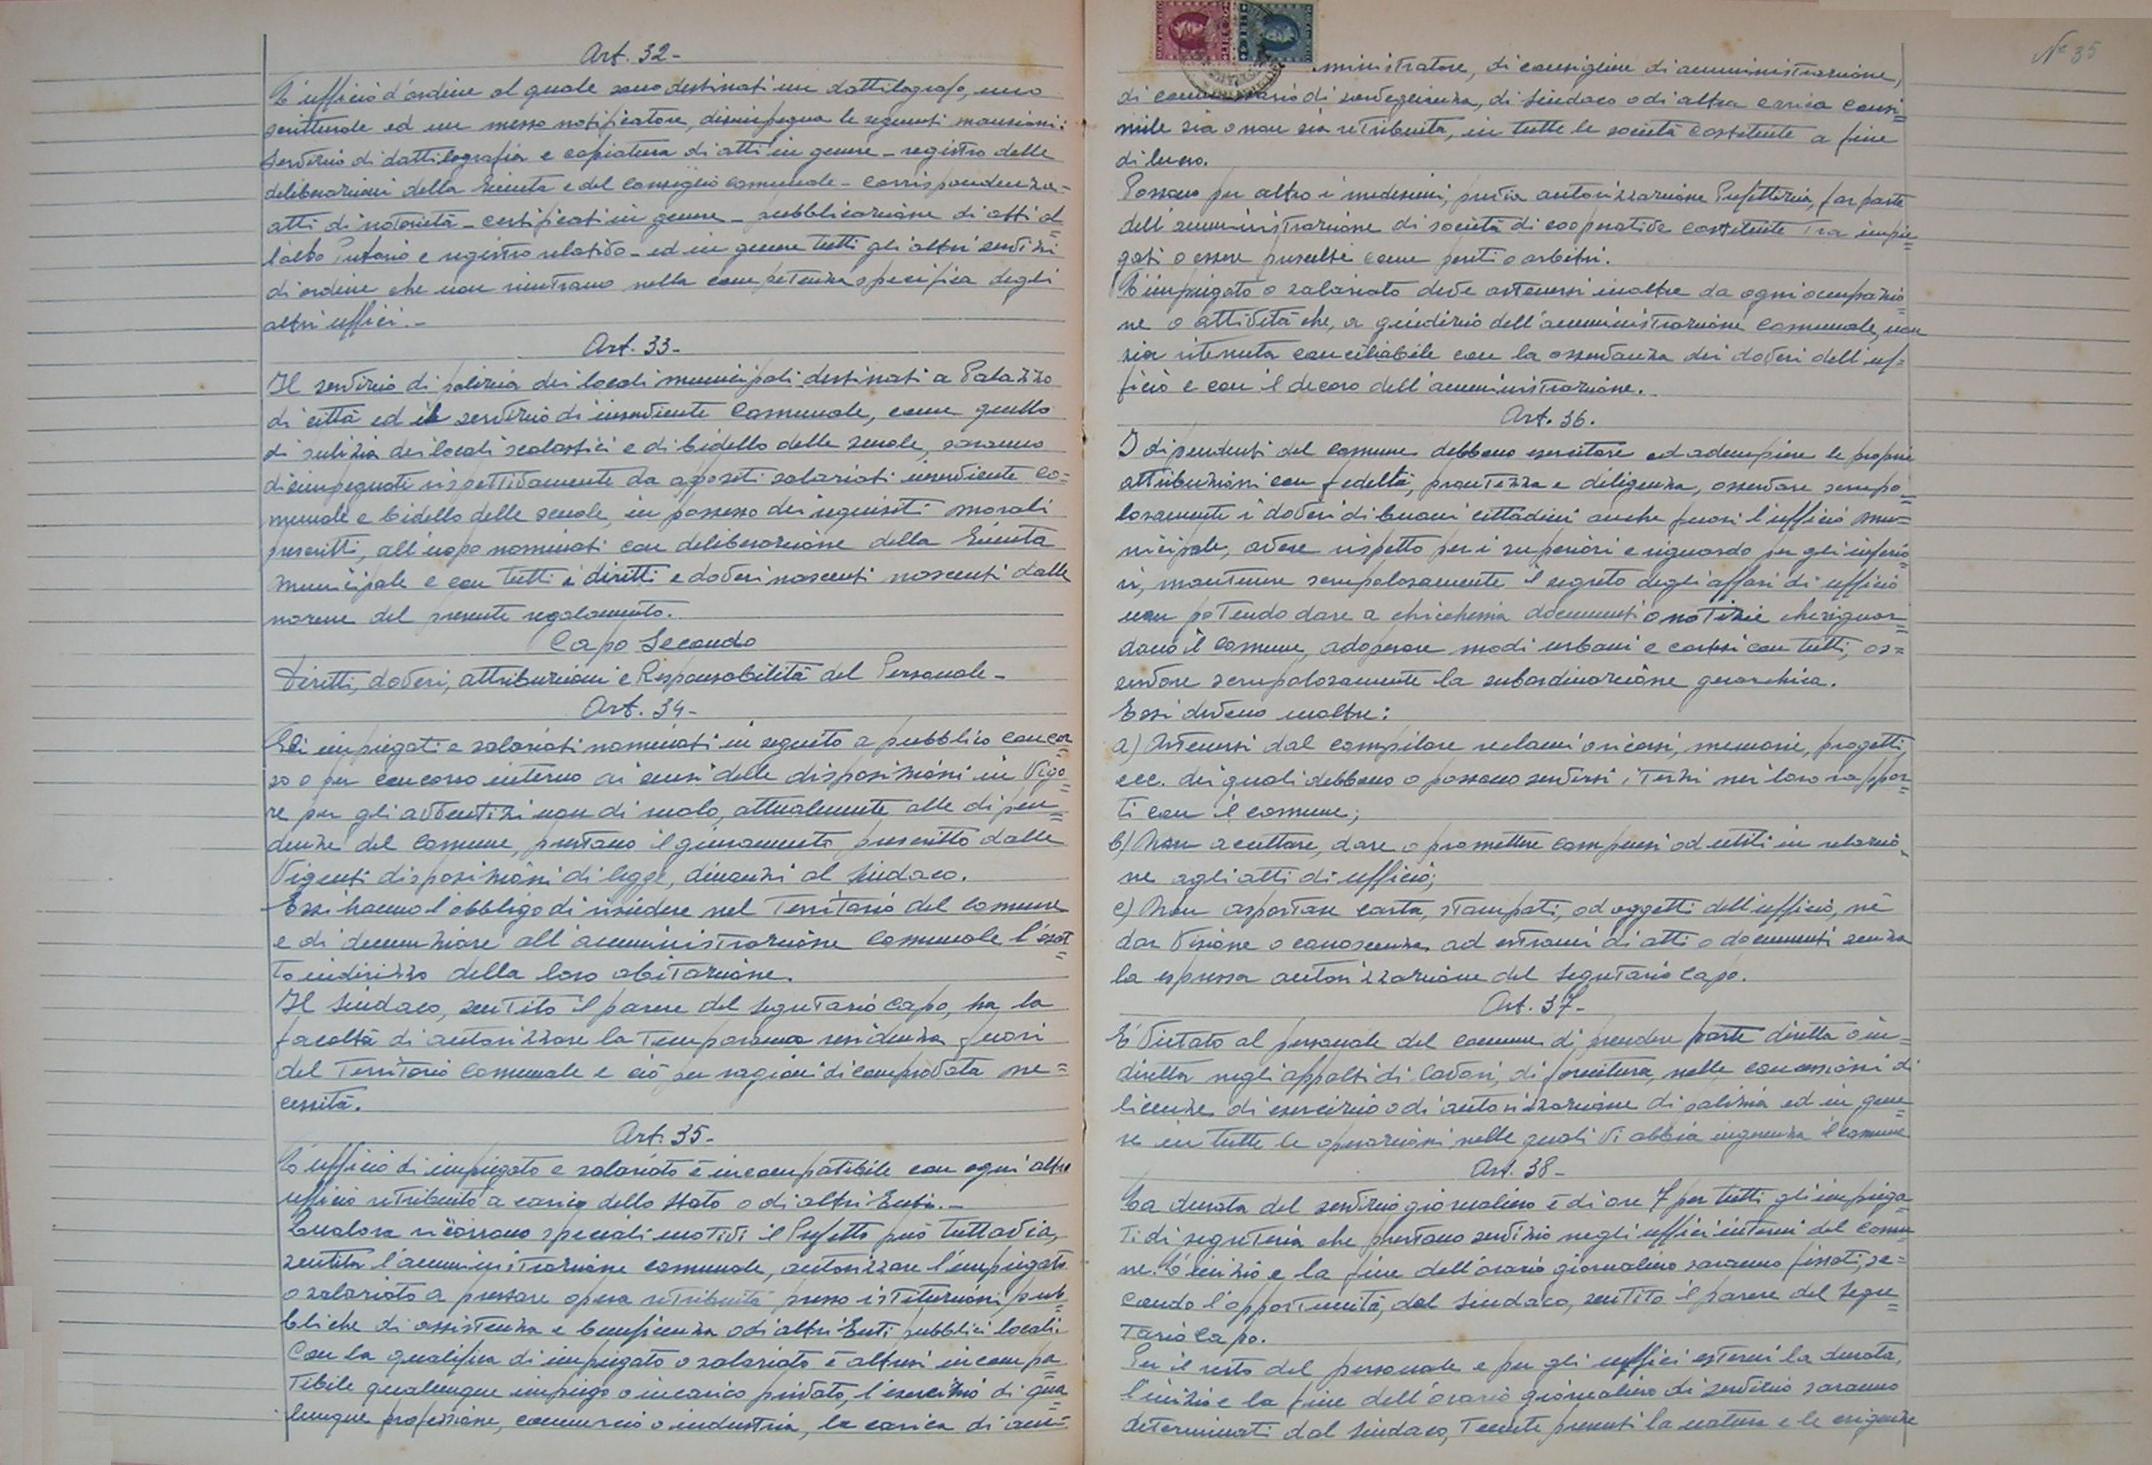 Art. 32-
L'ufficio d'ordine al quale sono destinati un dattilografo, uno
scritturale ed un messo notificatore, disimpegna le seguenti mansioni:
servizio di dattilografia e copiatura di atti in genere - registro delle
deliberazioni della Giunta e del Consiglio comunale - corrispondenza -
atti di notorietà - certificati in genere - pubblicazione di atti al=
l'albo Pretorio e registro relativo - ed in genere tutti gli altri servizi
di ordine che non rientrano nella competenza specifica degli
altri uffici.-
Art. 33-
Il servizio di pulizia dei locali municipali destinati a Palazzo
di città ed il servizio di inserviente Comunale, come quello
di pulizia dei locali scolastici e di bidello delle scuole, saranno
disimpegnati rispettivamente da appositi salariati inserviente Co=
munale e bidello delle scuole, in possesso dei requisiti morali
prescritti, all'uopo nominati con deliberazione della Giunta
Municipale e con tutti i diritti e doveri nascenti nascenti dalle
norme del presente regolamento.
Capo Secondo
Diritti, doveri, attribuzioni e Responsabilità del Personale-
Art. 34-
Gli impiegati e salariati nominati in seguito a pubblico concor=
so o per concorso interno ai sensi delle disposizioni in vigo=
re per gli avventizi non di ruolo, attualmente alle dipen=
denze del Comune, prestano il giuramento prescritto dalle
vigenti disposizioni di legge, dinanzi al Sindaco.
Essi hanno l'obbligo di risiedere nel territorio del Comune
e di denunziare all'amministrazione Comunale l'esat=
to indirizzo della loro abitazione.
Il Sindaco, sentito il parere del Segretario Capo, ha la
facoltà di autorizzare la temporanea residenza fuori
del territorio Comunale e ciò per ragioni di comprovata ne=
cessità.
Art. 35-
L'ufficio di impiegato e salariato è incompatibile con ogni altro
ufficio retribuito a carico dello Stato o di altri Enti.-
Qualora ricorrano speciali motivi il Prefetto può tuttavia,
sentita l'amministrazione comunale, autorizzare l'impiegato
o salariato a prestare opera retribuita presso istituzioni pub=
bliche di assistenza e beneficenza o di altri Enti pubblici locali.
Con la qualifica di impiegato o salariato è altresì incompa=
tibile qualunque impiego o incarico privato, l'esercizio di qua=
lunque professione, commercio o industria, la carica di am=
Nº 35
ministratore, di consigliere di amministrazione,
di commissario di sorveglianza, di Sindaco o di altra carica consi=
mile sia o non sia retribuita, in tutte le società costituite a fine
di lucro.
Possono per altro i medesimi, previa autorizzazione Prefettizia, far parte
dell'amministrazione di società di cooperative costituite tra impie=
gati o essere prescelti come periti o arbitri.
L'impiegato o salariato deve astenersi inoltre da ogni occupazio=
ne o attività che, a giudizio dell'amministrazione Comunale, non
sia ritenuta conciliabile con la osservanza dei doveri dell'uf=
ficio e con il decoro dell'amministrazione.
Art. 36.
I dipendenti del comune debbono esercitare ed adempiere le proprie
attribuzioni con fedeltà, prontezza e diligenza, osservare scrupo=
losamente i doveri di buoni cittadini anche fuori l'ufficio mu=
nicipale, avere rispetto per i superiori e riguardo per gli inferio=
ri, mantenere scrupolosamente il segreto degli affari di ufficio
non potendo dare a chicchessia documenti o notizie che riguar=
dano il Comune, adoperare modi urbani e cortesi con tutti, os=
servare scrupolosamente la subordinazione gerarchica.
Essi devono inoltre:
a) Astenersi dal compilare reclami o ricorsi, memorie, progetti,
ecc. dei quali debbano o possano servirsi i terzi nei loro rappor=
ti con il comune;
b) Non accettare, dare o promettere compensi od utili in relazio=
ne agli atti di ufficio;
c) Non asportare carta, stampati, od oggetti dell'ufficio, nè
dar visione o conoscenza ad estranei di atti o documenti senza
la espressa autorizzazione del Segretario Capo.
Art. 37-
E' vietato al personale del comune di prendere parte diretta o in=
diretta negli appalti di lavori, di fornitura, nelle concessioni di
licenze di esercizio o di autorizzazione di polizia ed in gene=
re in tutte le operazioni nelle quali vi abbia ingerenza il comune
Art. 38-
La durata del servizio giornaliero è di ore 7 per tutti gli impiega=
ti di segreteria che prestano servizio negli uffici interni del Comu=
ne. L'inizio e la fine dell'orario giornaliero saranno fissati, se=
condo l'opportunità, dal Sindaco, sentito il parere del Segre=
tario Capo.
Per il resto del personale e per gli uffici esterni la durata,
l'inizio e la fine dell'orario giornaliero di servizio saranno
determinati dal Sindaco, tenute presenti la natura e le esigenze